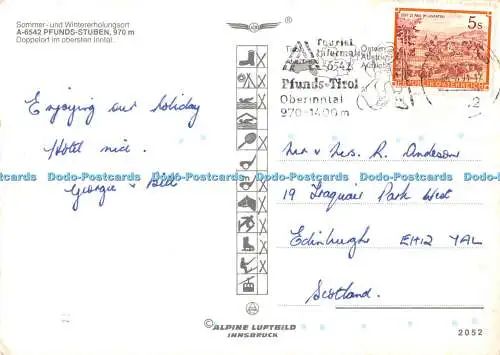 Sommer- und Wintererholungsort
A-6542 PFUNDS-STUBEN, 970 m
Doppeldorf im obersten Inntal.
5s
REPUBLIK ÖSTERREICH
Tourist
Informat
A-6542
Pfunds-Tirol
Oberinntal
970-1400 m
Enjoying our holiday
Hotel nice.
Georgie &
Mr & Mrs. R. Anderson
19 Traquair Park West
Edinburgh EH12 7AL
Scotland.
Dodo-Postcards Dodo-Postcards Dodo-Postcards Dodo-Postcards
© ALPINE LUFTBILD
INNSBRUCK
2052